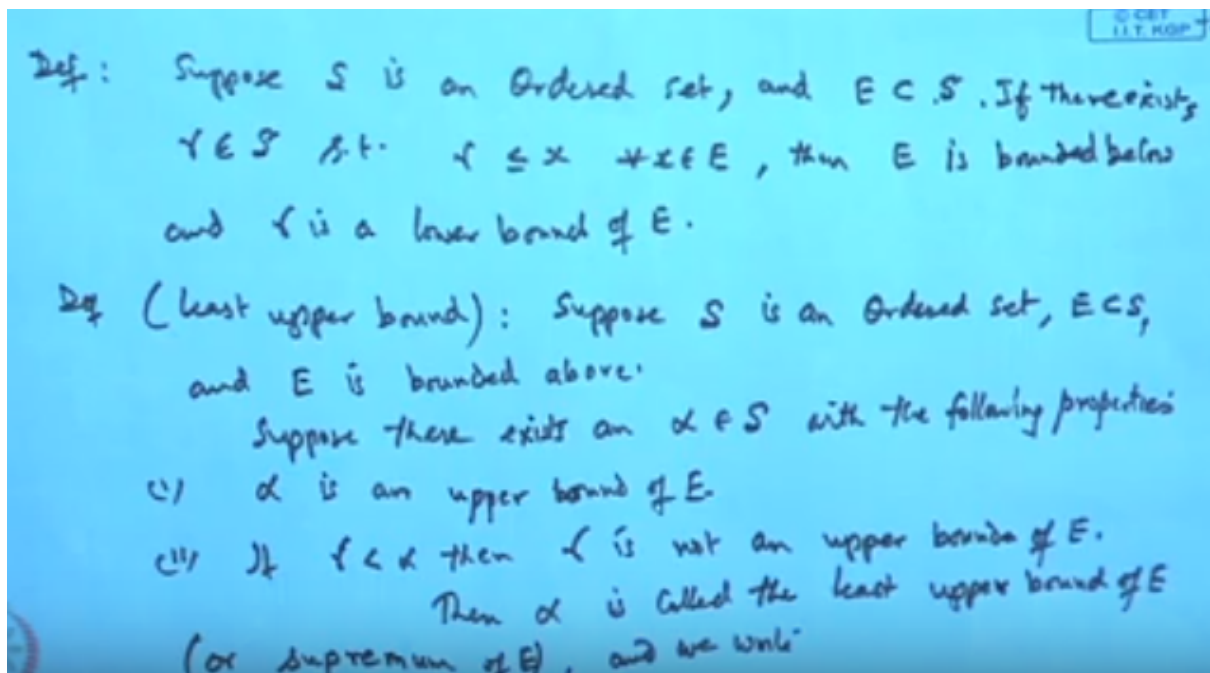 © CET
I.I.T. KGP
Def : Suppose S is an Ordered set, and E ⊂ S. If there exists
γ ∈ S s.t. γ ≤ x ∀ x ∈ E, then E is bounded below
and γ is a lower bound of E.
Def (least upper bound) : Suppose S is an Ordered set, E ⊂ S,
and E is bounded above.
Suppose there exists an α ∈ S with the following properties
(i) α is an upper bound of E.
(ii) If γ < α then γ is not an upper bound of E.
Then α is called the least upper bound of E
(or supremum of E), and we write